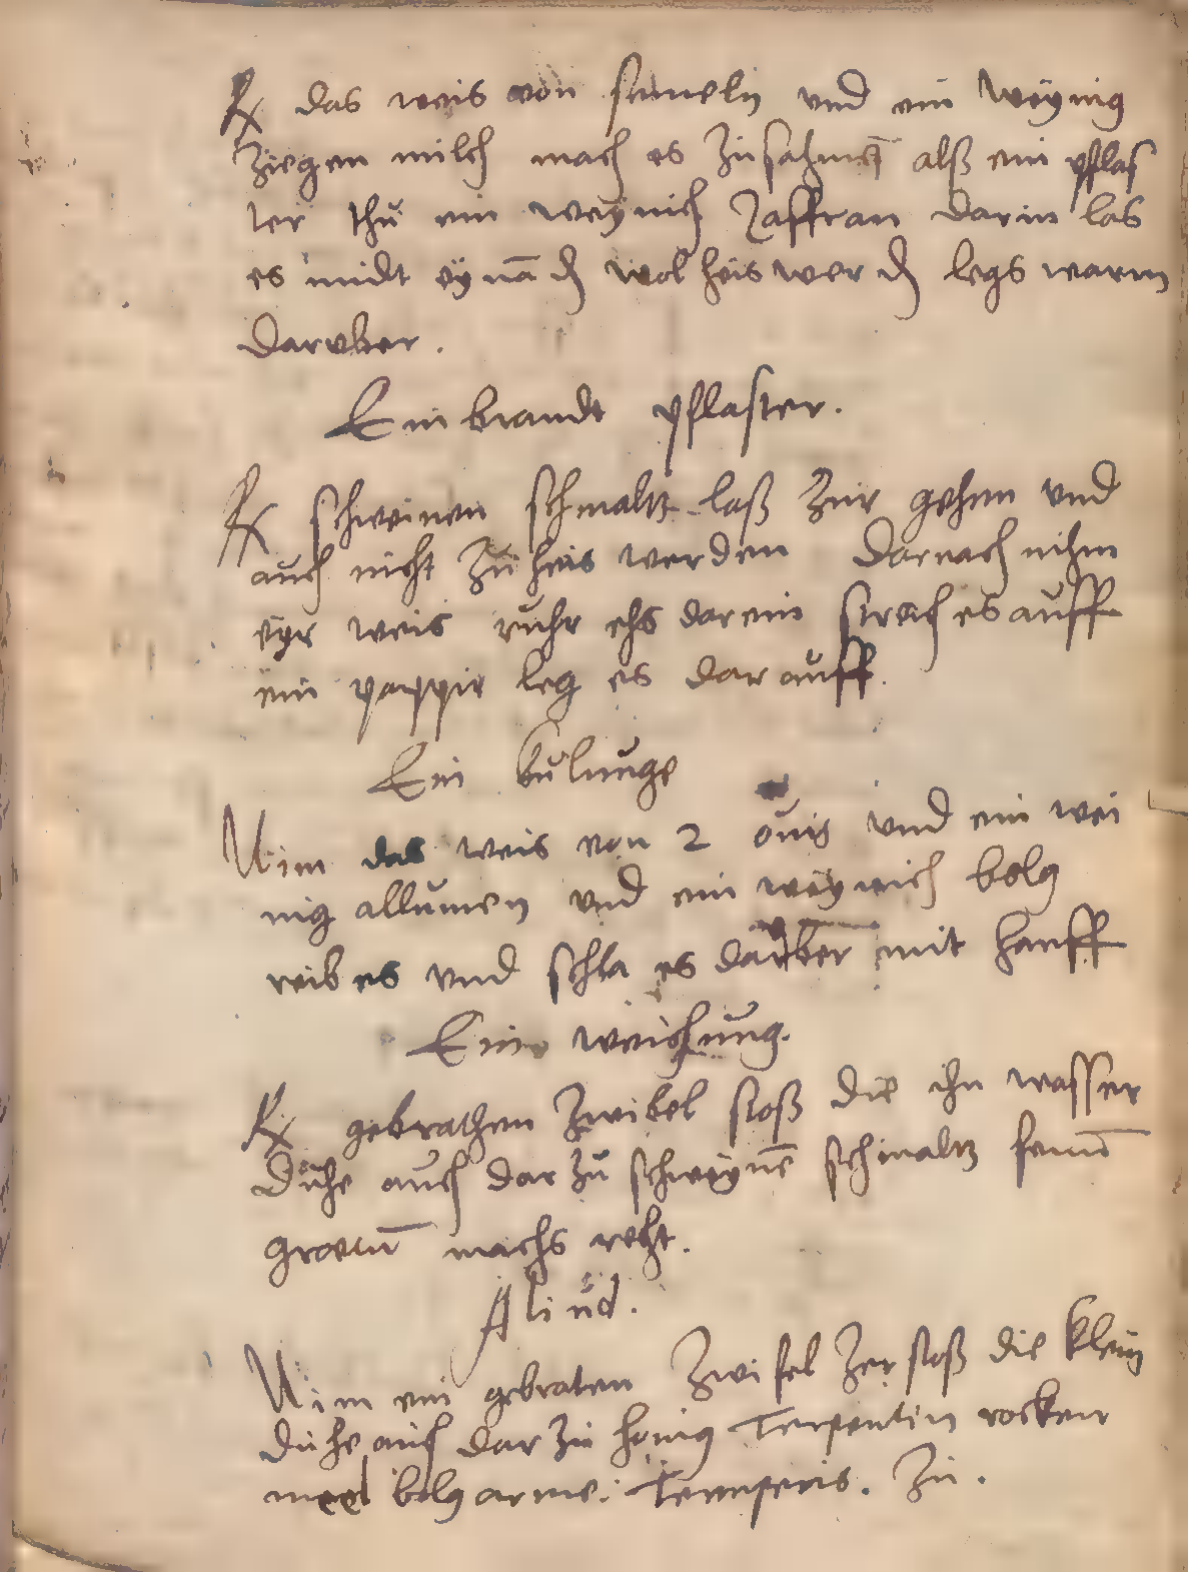 ℞ das weis von semeln vnd ein weynig
ziegen milch mach es zusahmē alß ein pflas
ter thu ein weynich zaffran darin las
es midt eynāder wol heis werden legs warm
daruber.
Ein brandt pflaster.
℞ schweinen schmaltz laß zur gehen vnd
auch nicht zu heis werden darnach nihm
eyr weis ruhr ehs darein streich es auff
ein pappir leg es darauff.
Ein kulunge
Nim das weis von 2 und ein wei
nig allumen vnd ein weynich bolg
reib es vnd schla es daruber mit hanff
Eine weichung.
℞ gebrathen zwibel stoß die ihn wasser
duhe auch dar zu schweynē schmaltz fenū
graecū machs recht.
Aliud.
Nim ein gebraten zwifel zerstoß die klein
duhe auch dar zu honig Terpentin rocken
meel bolg arme: Temperis. zu.